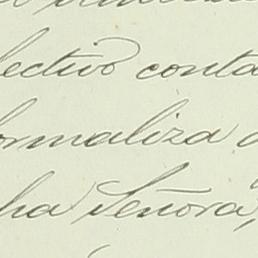 lectivo conta
ormaliza
ha Señora,